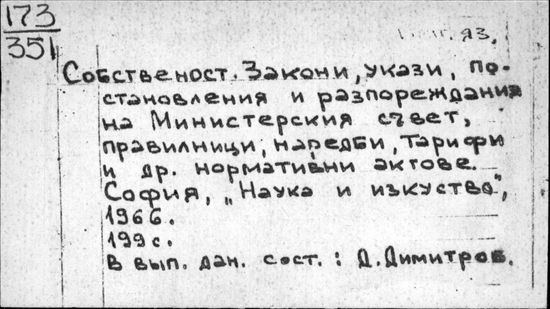 173
351
яз.
Собственост. Закони, укази, по-
становления и разпореждания
на Министерския съвет,
правилници, наредби, тарифи
и др. нормативни актове.
София, „Наука и изкуство",
1966.
199 с.
В вып. дан. сост.: Д. Димитров.